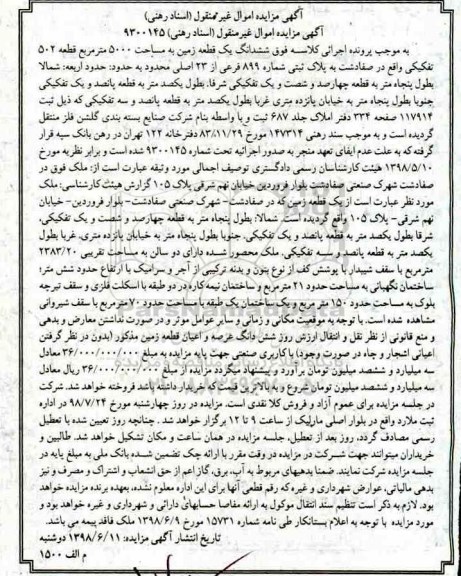 آگهی مزایده اموال غیرمنقول (اسناد رهنی)
آگهی مزایده اموال غیرمنقول (اسناد رهنی) ۹۳۰۰۱۴۵
به موجب پرونده اجرائی کلاسه فوق ششدانگ یک قطعه زمین به مساحت ۵۰۰۰ مترمربع قطعه ۵۰۲
تفکیکی واقع در صفادشت به پلاک ثبتی شماره ۸۹۹ فرعی از ۲۳ اصلی محدود به حدود: حدود اربعه: شمالا
بطول پنجاه متر به قطعه چهارصد و شصت و یک تفکیکی شرقا: بطول یکصد متر به قطعه پانصد و یک تفکیکی
جنوبا بطول پنجاه متر به خیابان پانزده متری غربا بطول یکصد متر به قطعه پانصد و سه تفکیکی که ذیل ثبت
۱۱۷۹۱۴ صفحه ۳۳۴ دفتر املاک جلد ۶۸۷ ثبت و یا واسطه بنام شرکت صنایع بسته بندی گلشن فلز منتقل
گردیده است و به موجب سند رهنی ۱۴۷۳۱۴ مورخ ۸۳/۱۱/۲۹ دفترخانه ۱۲۲ تهران در رهن بانک سپه قرار
گرفته که به علت عدم ایفای تعهد منجر به صدور اجرائیه تحت شماره ۹۳۰۰۱۴۵ شده است و برابر نظریه مورخ
۱۳۹۸/۵/۱۰ هیئت کارشناسان رسمی دادگستری توصیف اجمالی مورد وثیقه عبارت است از: ملک فوق در
صفادشت شهرک صنعتی صفادشت بلوار فروردین خیابان نهم شرقی پلاک ۱۰۵ گزارش هیئت کارشناسی: ملک
مورد نظر عبارت است از یک قطعه زمین که در صفادشت- شهرک صنعتی صفادشت- بلوار فروردین- خیابان
نهم شرقی- پلاک ۱۰۵ واقع گردیده است. شمالا: بطول پنجاه متر به قطعه چهارصد و شصت و یک تفکیکی،
شرقا بطول یکصد متر به قطعه پانصد و یک تفکیکی. جنوبا بطول پنجاه متر به خیابان پانزده متری، غربا بطول
یکصد متر به قطعه پانصد و سه تفکیکی. ملک محصور شده دارای دو سالن به مساحت تقریبی ۲۳۸۳/۲۰
مترمربع با سقف شیبدار با پوشش کف از نوع بتون و بدنه ترکیبی از آجر و سرامیک با ارتفاع حدود شش متر؛
ساختمان نگهبانی به مساحت حدود ۲۱ مترمربع و ساختمان نیمه کاره در دو طبقه با اسکلت فلزی و سقف تیرچه
بلوک به مساحت حدود ۱۵۰ متر مربع و یک ساختمان یک طبقه با مساحت حدود ۷۰ مترمربع با سقف شیروانی
مشاهده شده است. با توجه به موقعیت مکانی و زمانی و سایر عوامل موثر و در صورت نداشتن معارض و بدهی
و منع قانونی از نظر نقل و انتقال ارزش روز شش دانگ عرصه و اعیان قطعه زمین مذکور (بدون در نظر گرفتن
اعیانی اشجار و چاه در صورت وجود) با کاربری صنعتی جهت پایه مزایده به مبلغ ۳۶/۰۰۰/۰۰۰/۰۰۰ معادل
سه میلیارد و ششصد میلیون تومان برآورد و پیشنهاد میگردد مزایده از مبلغ ۳۶/۰۰۰/۰۰۰/۰۰۰ ریال معادل
سه میلیارد و ششصد میلیون تومان شروع و به بالاترین قیمت که خریدار داشته باشد فروخته خواهد شد. شرکت
در جلسه مزایده برای عموم آزاد و فروش کلا نقدی است. مزایده در روز چهارشنبه مورخ ۹۸/۷/۲۴ در اداره
ثبت ملارد واقع در بلوار اصلی مارلیک از ساعت ۹ تا ۱۲ برگزار خواهد شد. چنانچه روز تعیین شده با تعطیل
رسمی مصادف گردد، روز بعد از تعطیل، جلسه مزایده در همان ساعت و مکان تشکیل خواهد شد. طالبین و
خریداران میتوانند جهت شرکت در مزایده در وقت مقرر با ارائه چک تضمین شده بانک ملی به مبلغ پایه در
جلسه مزایده شرکت نمایند. ضمنا بدهیهای مربوط به آب، برق، گاز اعم از حق انشعاب و اشتراک و مصرف و نیز
بدهی مالیاتی، عوارض شهرداری و غیره که رقم قطعی آنها برای این اداره معلوم نشده، بعهده برنده مزایده خواهد
بود. لازم به ذکر است تنظیم سند انتقال موکول به ارائه مفاصا حسابهای دارائی و شهرداری و غیره خواهد بود و
مورد مزایده با توجه به اعلام بستانکار طی نامه شماره ۱۵۷۳۱ مورخ ۱۳۹۸/۶/۹ ملک فاقد بیمه می باشد.
تاریخ انتشار آگهی مزایده: ۱۳۹۸/۶/۱۱ دوشنبه
م الف ۱۵۰۰